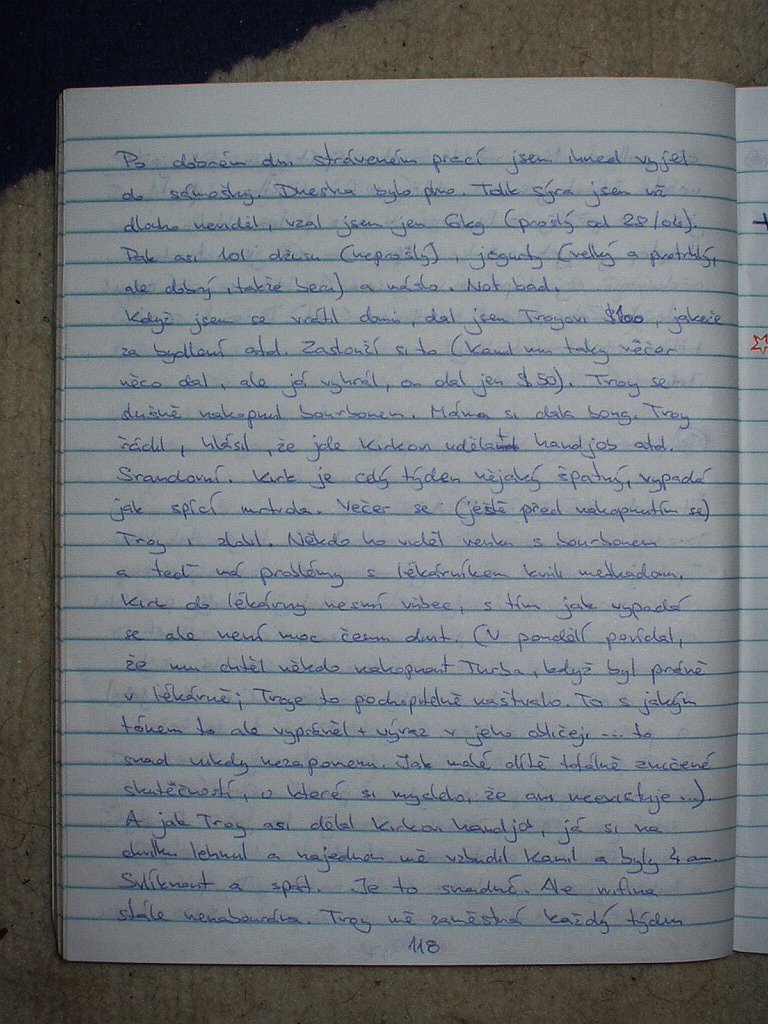 Po dobrém dni stráveném prací jsem ihned vyjel
do sámošky. Dneska bylo plno. Tolik sýra jsem už
dlouho neviděl, vzal jsem jen 6kg (prošlý od 28/ok).
Pak asi 10l džusu (neprošlý), jogurty (velký a protrhlý,
ale dobrý, takže beru) a máslo. Not bad.
Když jsem se vrátil domů, dal jsem Troyovi $100, jakože
za bydlení atd. Zaslouží si to (Kamil mu taky včera
něco dal, ale já vyhrál, on dal jen $50). Troy se
slušně nakopnul bourbonem. Máma si dala bong. Troy
řádil, hlásil, že jde Kirkovi udělat handjob atd.
Srandovní. Kirk je celý týden nějaký špatný, vypadá
jak spící mrtvola. Večer se (ještě před nakopnutím se)
Troy i zlobil. Někdo ho viděl venku s bourbonem
a teď má problémy s lékárníkem kvůli methadonu.
Kirk do lékárny nesmí vůbec, s tím jak vypadá
se ale není moc čemu divit. (V pondělí povídal,
že mu chtěl někdo nakopnout Turba, když byl právě
v lékárně; Troye to pochopitelně naštvalo. To s jakým
tónem to ale vyprávěl + výraz v jeho obličeji ... to
snad nikdy nezapomenu. Jak malé dítě totálně zničené
skutečností, o které si myslelo, že ani neexistuje ...)
A jak Troy asi dělal Kirkovi handjob, já si na
chvilku lehnul a najednou mě vzbudil Kamil a byly 4 am.
Svlíknout a spát. Je to snadné. Ale
stále nenabourána. Troy mě zaměstná každý týden
118